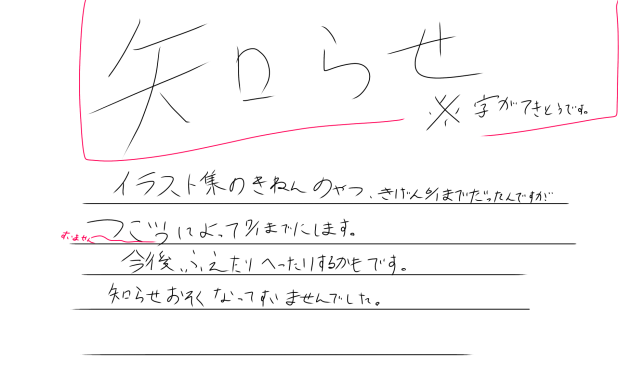 知らせ
※字がてきとうです。
イラスト集のきねんのやつ、きげん6/1までだったんですが
つごうによって7/1までにします。
すいません
今後、ふえたりへったりするかもです。
知らせおそくなってすいませんでした。